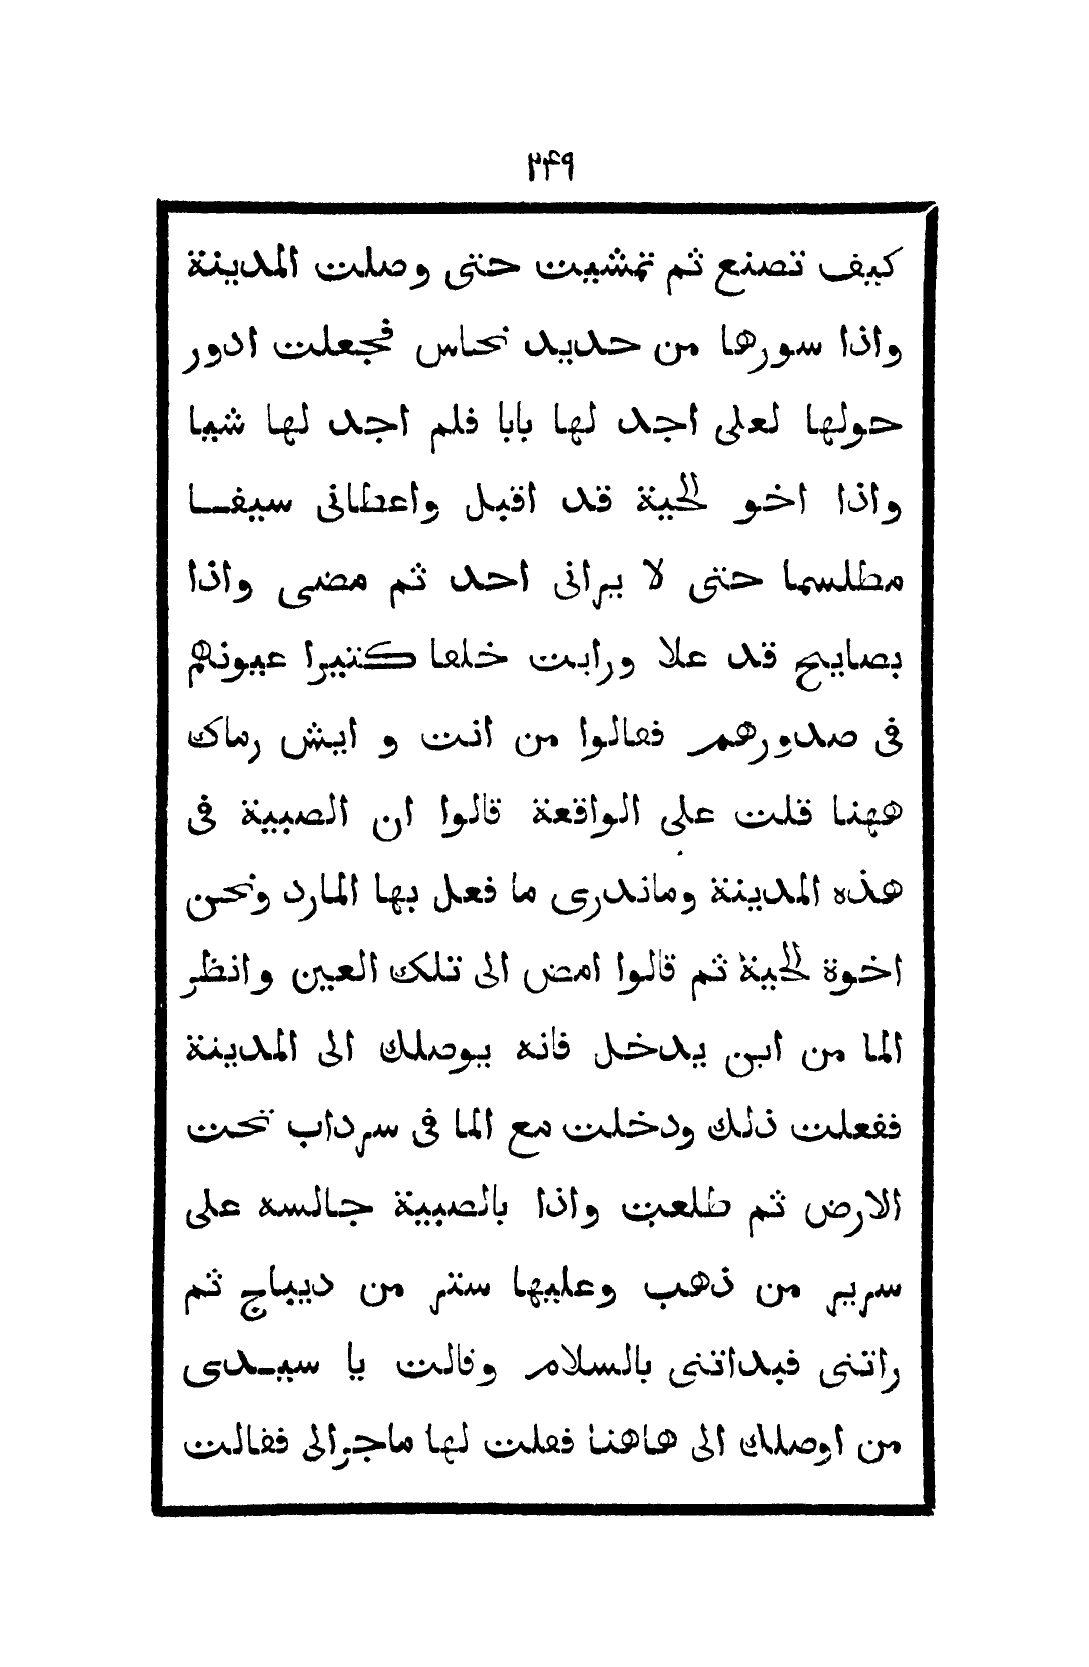 ٢٤٩
كيف تصنع ثم تمشيت حتى وصلت المدينة
واذا سورها من حديد نحاس فجعلت ادور
حولها لعلى اجد لها بابا فلم اجد لها شيا
واذا اخو لحية قد اقبل واعطانى سيفــا
مطلسما حتى لا يرانى احد ثم مضى واذا
بصايح قد علا ورايت خلقا كثيرا عيونهم
فى صدورهم فقالوا من انت و ايش رماك
ههنا قلت على الواقعة قالوا ان الصبية فى
هذه المدينة وماندرى ما فعل بها المارد ونحن
اخوة لحية ثم قالوا امض الى تلك العين وانظر
الما من اين يدخل فانه يوصلك الى المدينة
ففعلت ذلك ودخلت مع الما فى سرداب تحت
الارض ثم طلعت واذا بالصبية جالسه على
سرير من ذهب وعليها ستر من ديباج ثم
راتنى فبداتنى بالسلام وقالت يا سيــدى
من اوصلك الى هاهنا فقلت لها ماجرالى فقالت